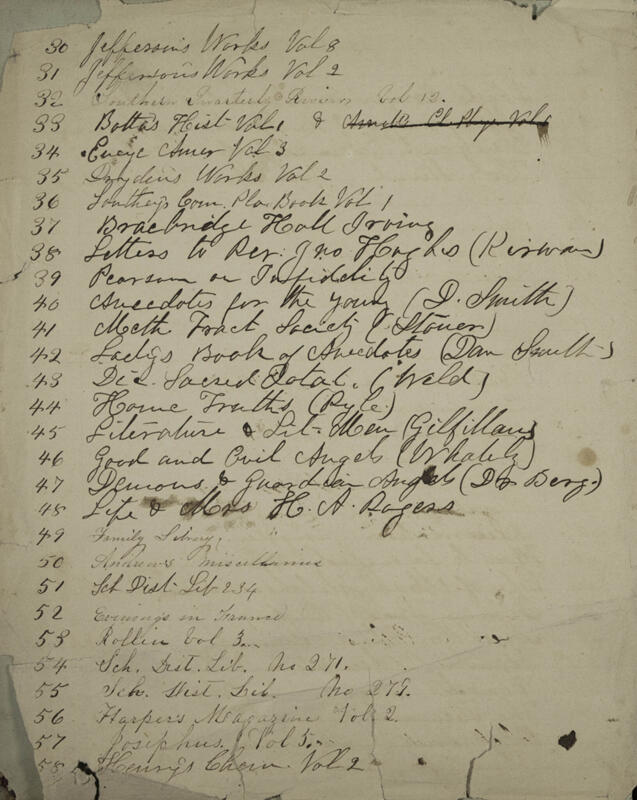 30 Jefferson's Works Vol 3
31 Jefferson's Works Vol 2
32 Southern Quarterly Review Vol 12.
33 Bottas Hist Vol 1 &
34 Encyc Amer Vol 3
35 Drydens Works Vol 2
36 Southeys Com. Pla. Book Vol 1
37 Bracebridge Hall Irving
38 Letters to Rev. Jno Hughs (Kirwan)
39 Pearson on Infidelity
40 Anecdotes for the Young (D. Smith)
41 Meth Tract Society
42 Ladys Book of Anecdotes (Dan Smith)
43 Sacred (Weld)
44 Home Truths (Ryle)
45 Literature & Lit- Men (Gilfillan)
46 Good and Evil Angels (Whately)
47 Demons & Guardian Angels (De Berg.)
48 Life & Mrs H. A. Rogers
49 Family Library.
50 Andrew's Miscellanies
51 Sch Dist Lib 234
52 Evenings in France
53 Rollin Vol 3.
54 Sch. Dist. Lib. No 271.
55 Sch. Dist. Lib. No 279.
56 Harpers Magazine Vol 2.
57 Josephus. Vol 5.
58 Henrys Chem Vol 2